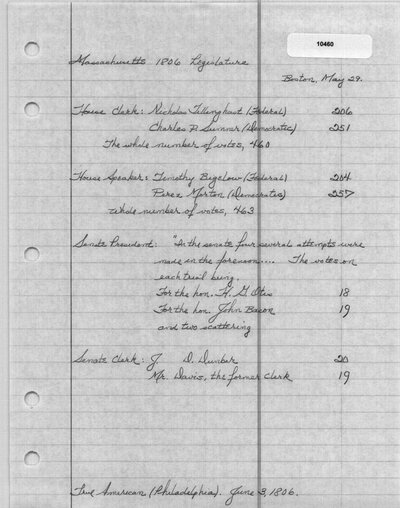 10460
Massachusetts 1806 Legislature
Boston, May 29.
House Clerk: Nicholas Tillinghast (Federal) 206
Charles P. Sumner (Democratic) 251
The whole number of votes, 460
House Speaker: Timothy Bigelow (Federal) 204
Perez Morton (Democratic) 257
Whole number of votes, 463
Senate President: "In the senate four several attempts were
made in the forenoon.... The votes on
each trial being.
For the hon. H. G. Otis 18
For the hon. John Bacon 19
and two scattering
Senate Clerk: J. D. Dunbar 20
Mr. Davis, the former clerk 19
True American (Philadelphia). June 3, 1806.